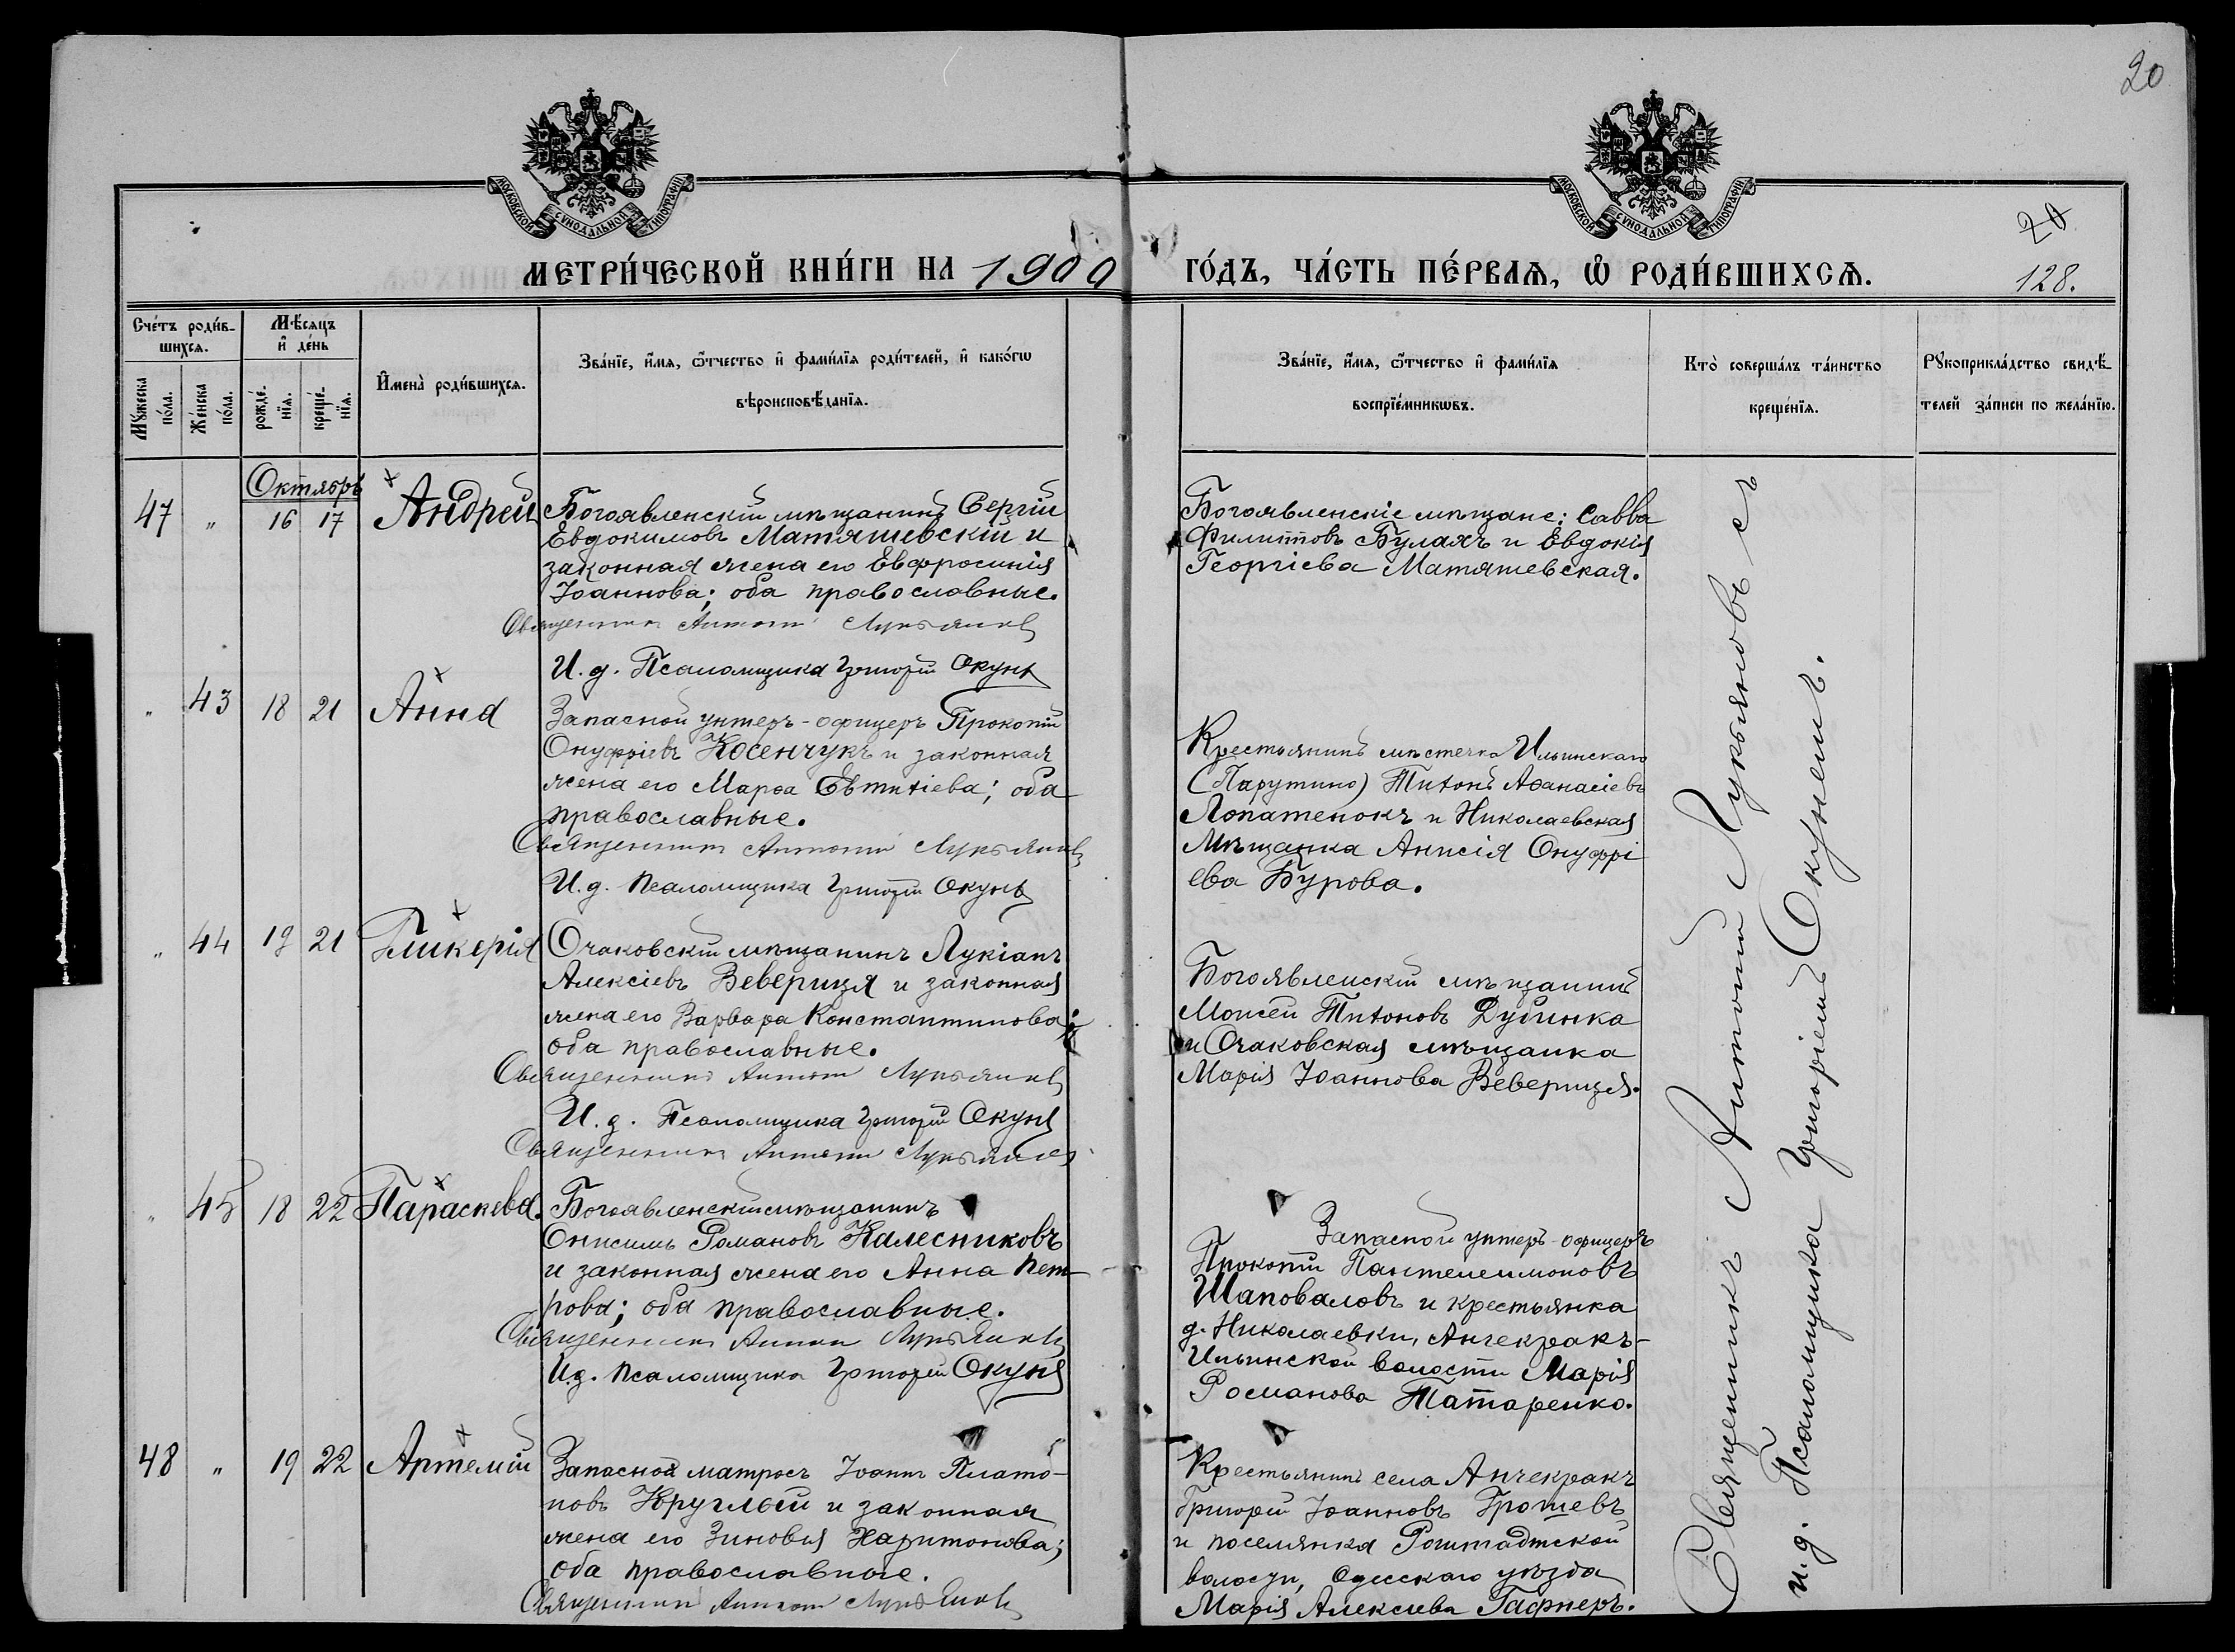 20
МОСКОВСКОЙ СѴНОДАЛЬНОЙ ТИПОГРАФІИ
МОСКОВСКОЙ СѴНОДАЛЬНОЙ ТИПОГРАФІИ
20
128.
МЕТРИ́ЧЕСКОЙ КНИ́ГИ НА 1900 ГО́ДЪ, ЧА́СТЬ ПЕ́РВАѦ, Ѡ҆ РОДИ́ВШИХСѦ.
Счетъ роди́в-
шихсѧ.
Мꙋжеска
по́ла.
Же́нска
по́ла.
Мѣ́сяцъ
и҆ де́нь
рожде́-
нїѧ.
креще́-
нїѧ.
И҆мена̀ роди́вшихсѧ.
Зва́нїе, и҆́мѧ, ѻ҆́тчество и҆ фами́лїѧ роди́телей, и҆ како́гѡ
вѣроисповѣ́данїѧ.
Зва́нїе, и҆́мѧ, ѻ҆́тчество и҆ фами́лїѧ
воспрїе́мникѡвъ.
Кто̀ соверша́лъ та́инство
креще́нїѧ.
Рꙋкоприкла́дство свидѣ́-
телей за́писи по жела́нїю.
Октябрь
47 " 16 17 Андрей
Богоявленскій мѣщанинъ Сергій
Евдокимовъ Матяшевскій и
законная жена его Евфросинія
Іоаннова; оба православные.
Священникъ Антоній Лукьяновъ
И. д. Псаломщика Григорій Окунь
Богоявленскіе мѣщане: Савва
Филипповъ Булахъ и Евдокія
Георгіева Матяшевская.
" 43 18 21 Анна
Запасной унтеръ-офицеръ Прокопій
Онуфріевъ Косенчукъ и законная
жена его Марѳа Евтихіева; оба
православные.
Священникъ Антоній Лукьяновъ
И. д. Псаломщика Григорій Окунь
Крестьянинъ мѣстечка Ильинскаго
(Парутино) Тихонъ Аѳанасіевъ
Лопатенокъ и Николаевская
мѣщанка Анисія Онуфрі
ева Бурова.
" 44 19 21 Гликерія
Очаковскій мѣщанинъ Лукіанъ
Алексіевъ Веверица и законная
жена его Варвара Константинова;
оба православные.
Священникъ Антоній Лукьяновъ
И. д. Псаломщика Григорій Окунь
Священникъ Антоній Лукьяновъ
Богоявленскій мѣщанинъ
Моисей Тихоновъ Дубинка
и Очаковская мѣщанка
Марія Іоаннова Веверица.
" 45 18 22 Параскева.
Богоявленскій мѣщанинъ
Онисимъ Романовъ Калесниковъ
и законная жена его Анна Пет-
рова; оба православные.
Священникъ Антоній Лукьяновъ
И. д. Псаломщика Григорій Окунь
Запасной унтеръ-офицеръ
Прокопій Пантелеимоновъ
Шаповаловъ и крестьянка
д. Николаевки, Анчекракъ-
Ильинской волости Марія
Романова Татаренко.
48 " 19 22 Артемій
Запасной матросъ Іоаннъ Плато-
новъ Круглый и законная
жена его Зиновія Харитонова;
оба православные.
Священникъ Антоній Лукьяновъ
Крестьянинъ села Анчекракъ
Григорій Іоанновъ Грошевъ
и поселянка Роштадтской
волости, Одесскаго уѣзда
Марія Алексіева Гафнеръ.
Священникъ Антоній Лукьяновъ съ
и. д. Псаломщика Григоріемъ Окунемъ.